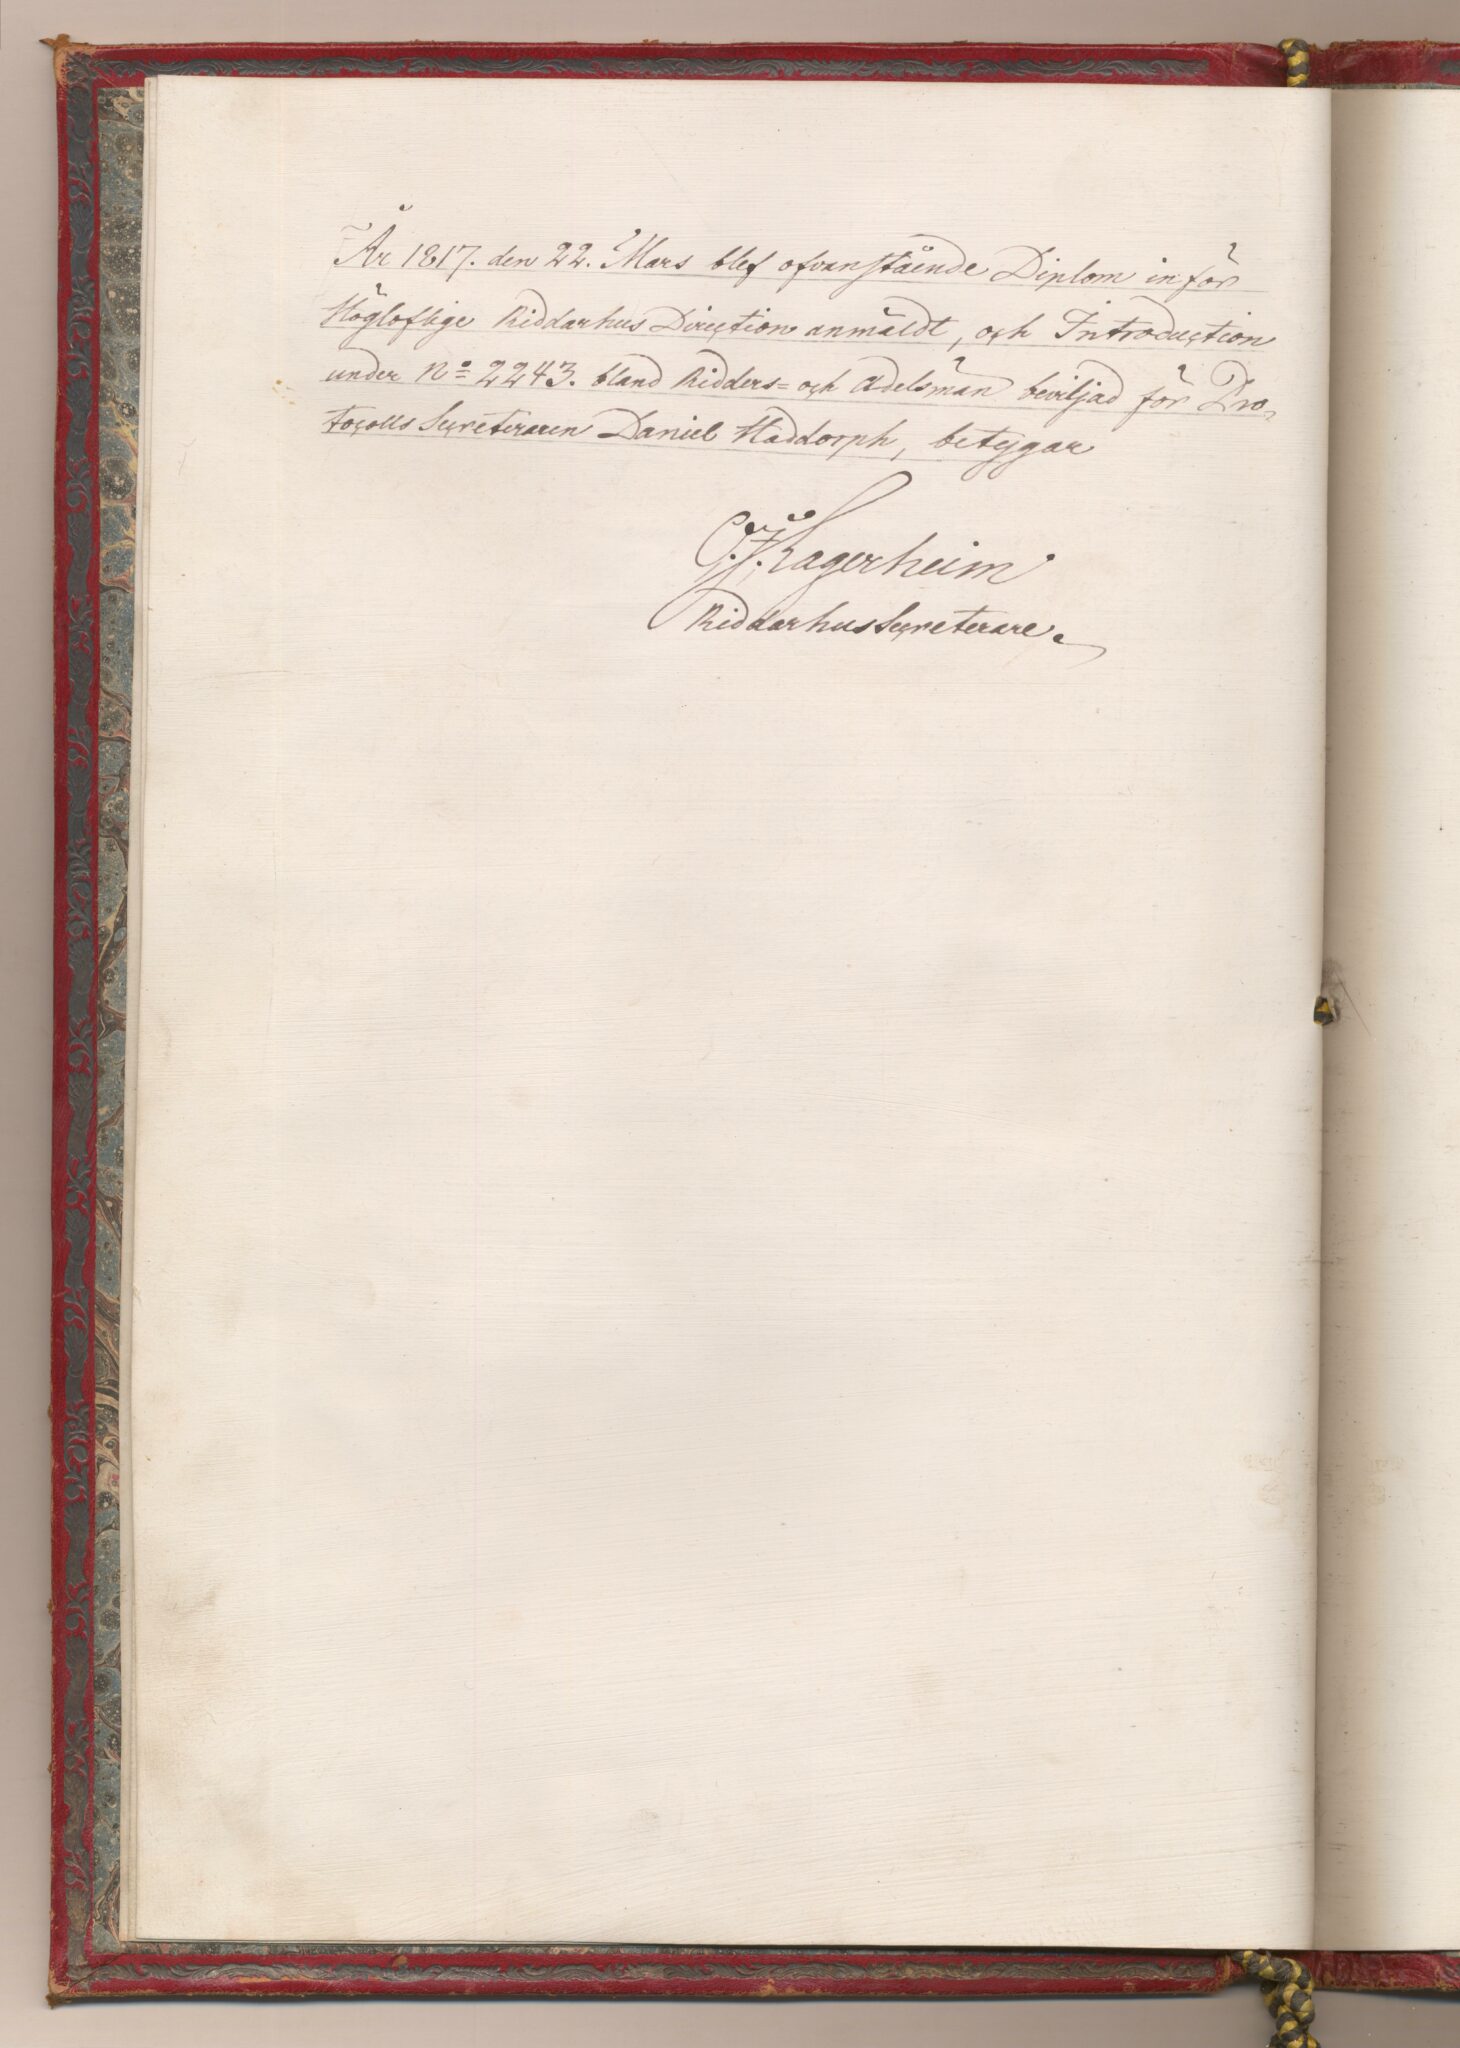 År 1817. den 22. Mars blef ofvanstående Diplom inför
Högloflige Riddarhus Direction anmäldt, och Introduction
under No 2243. bland Ridders= och Adelsmän beviljad för Pro-
tocolls Secreteraren Daniel Haddorph, betygar
C. F. Lagerheim
Riddarhus Secreterare.